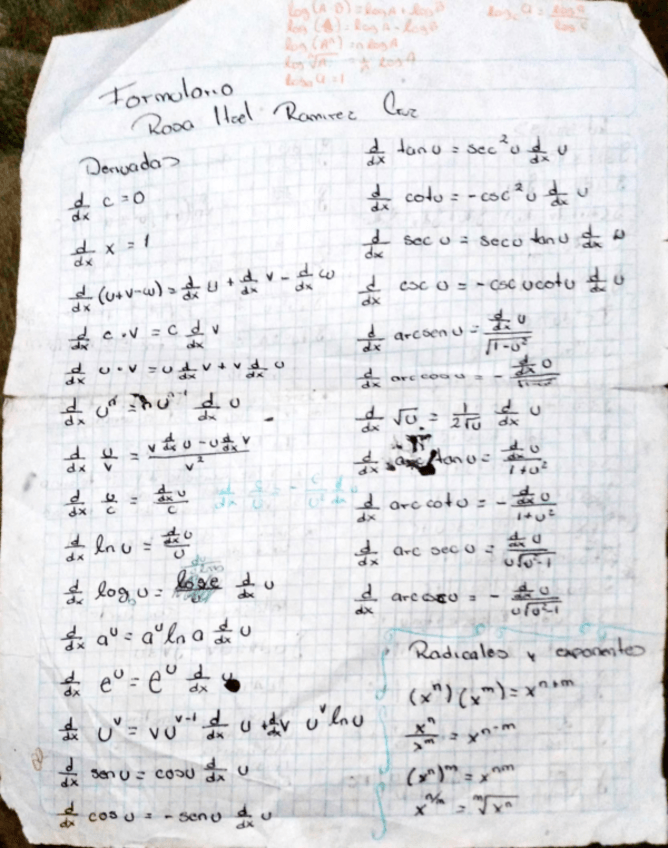 log(A·B)=logA+logB
log(A/B)=logA-logB
log(Aⁿ)=n logA
log ⁿ√A = 1/n logA
logₐa=1
Formulario
Rosa Itzel Ramirez Cruz
Derivadas
d/dx c = 0
d/dx x = 1
d/dx (u+v-w) = d/dx u + d/dx v - d/dx w
d/dx c·v = c d/dx v
d/dx u·v = u d/dx v + v d/dx u
d/dx uⁿ = nuⁿ⁻¹ d/dx u
d/dx u/v = (v d/dx u - u d/dx v)/v²
d/dx u/c = (d/dx u)/c
d/dx ln u = (d/dx u)/u
d/dx log u = log e/u d/dx u
d/dx aᵘ = aᵘ ln a d/dx u
d/dx eᵘ = eᵘ d/dx u
d/dx uᵛ = vuᵛ⁻¹ d/dx u + d/dx v uᵛ ln u
d/dx sen u = cos u d/dx u
d/dx cos u = -sen u d/dx u
d/dx tan u = sec² u d/dx u
d/dx cot u = -csc² u d/dx u
d/dx sec u = sec u tan u d/dx u
d/dx csc u = -csc u cot u d/dx u
d/dx arc sen u = (d/dx u)/√(1-u²)
d/dx arc cos u = - (d/dx u)/√(1-u²)
d/dx √u = 1/(2√u) d/dx u
d/dx arc tan u = (d/dx u)/(1+u²)
d/dx arc cot u = - (d/dx u)/(1+u²)
d/dx arc sec u = (d/dx u)/(u√(u²-1))
d/dx arc csc u = - (d/dx u)/(u√(u²-1))
Radicales y exponentes
(xⁿ)(xᵐ) = xⁿ⁺ᵐ
xⁿ/xᵐ = xⁿ⁻ᵐ
(xⁿ)ᵐ = xⁿᵐ
xⁿ/ᵐ = ᵐ√xⁿ